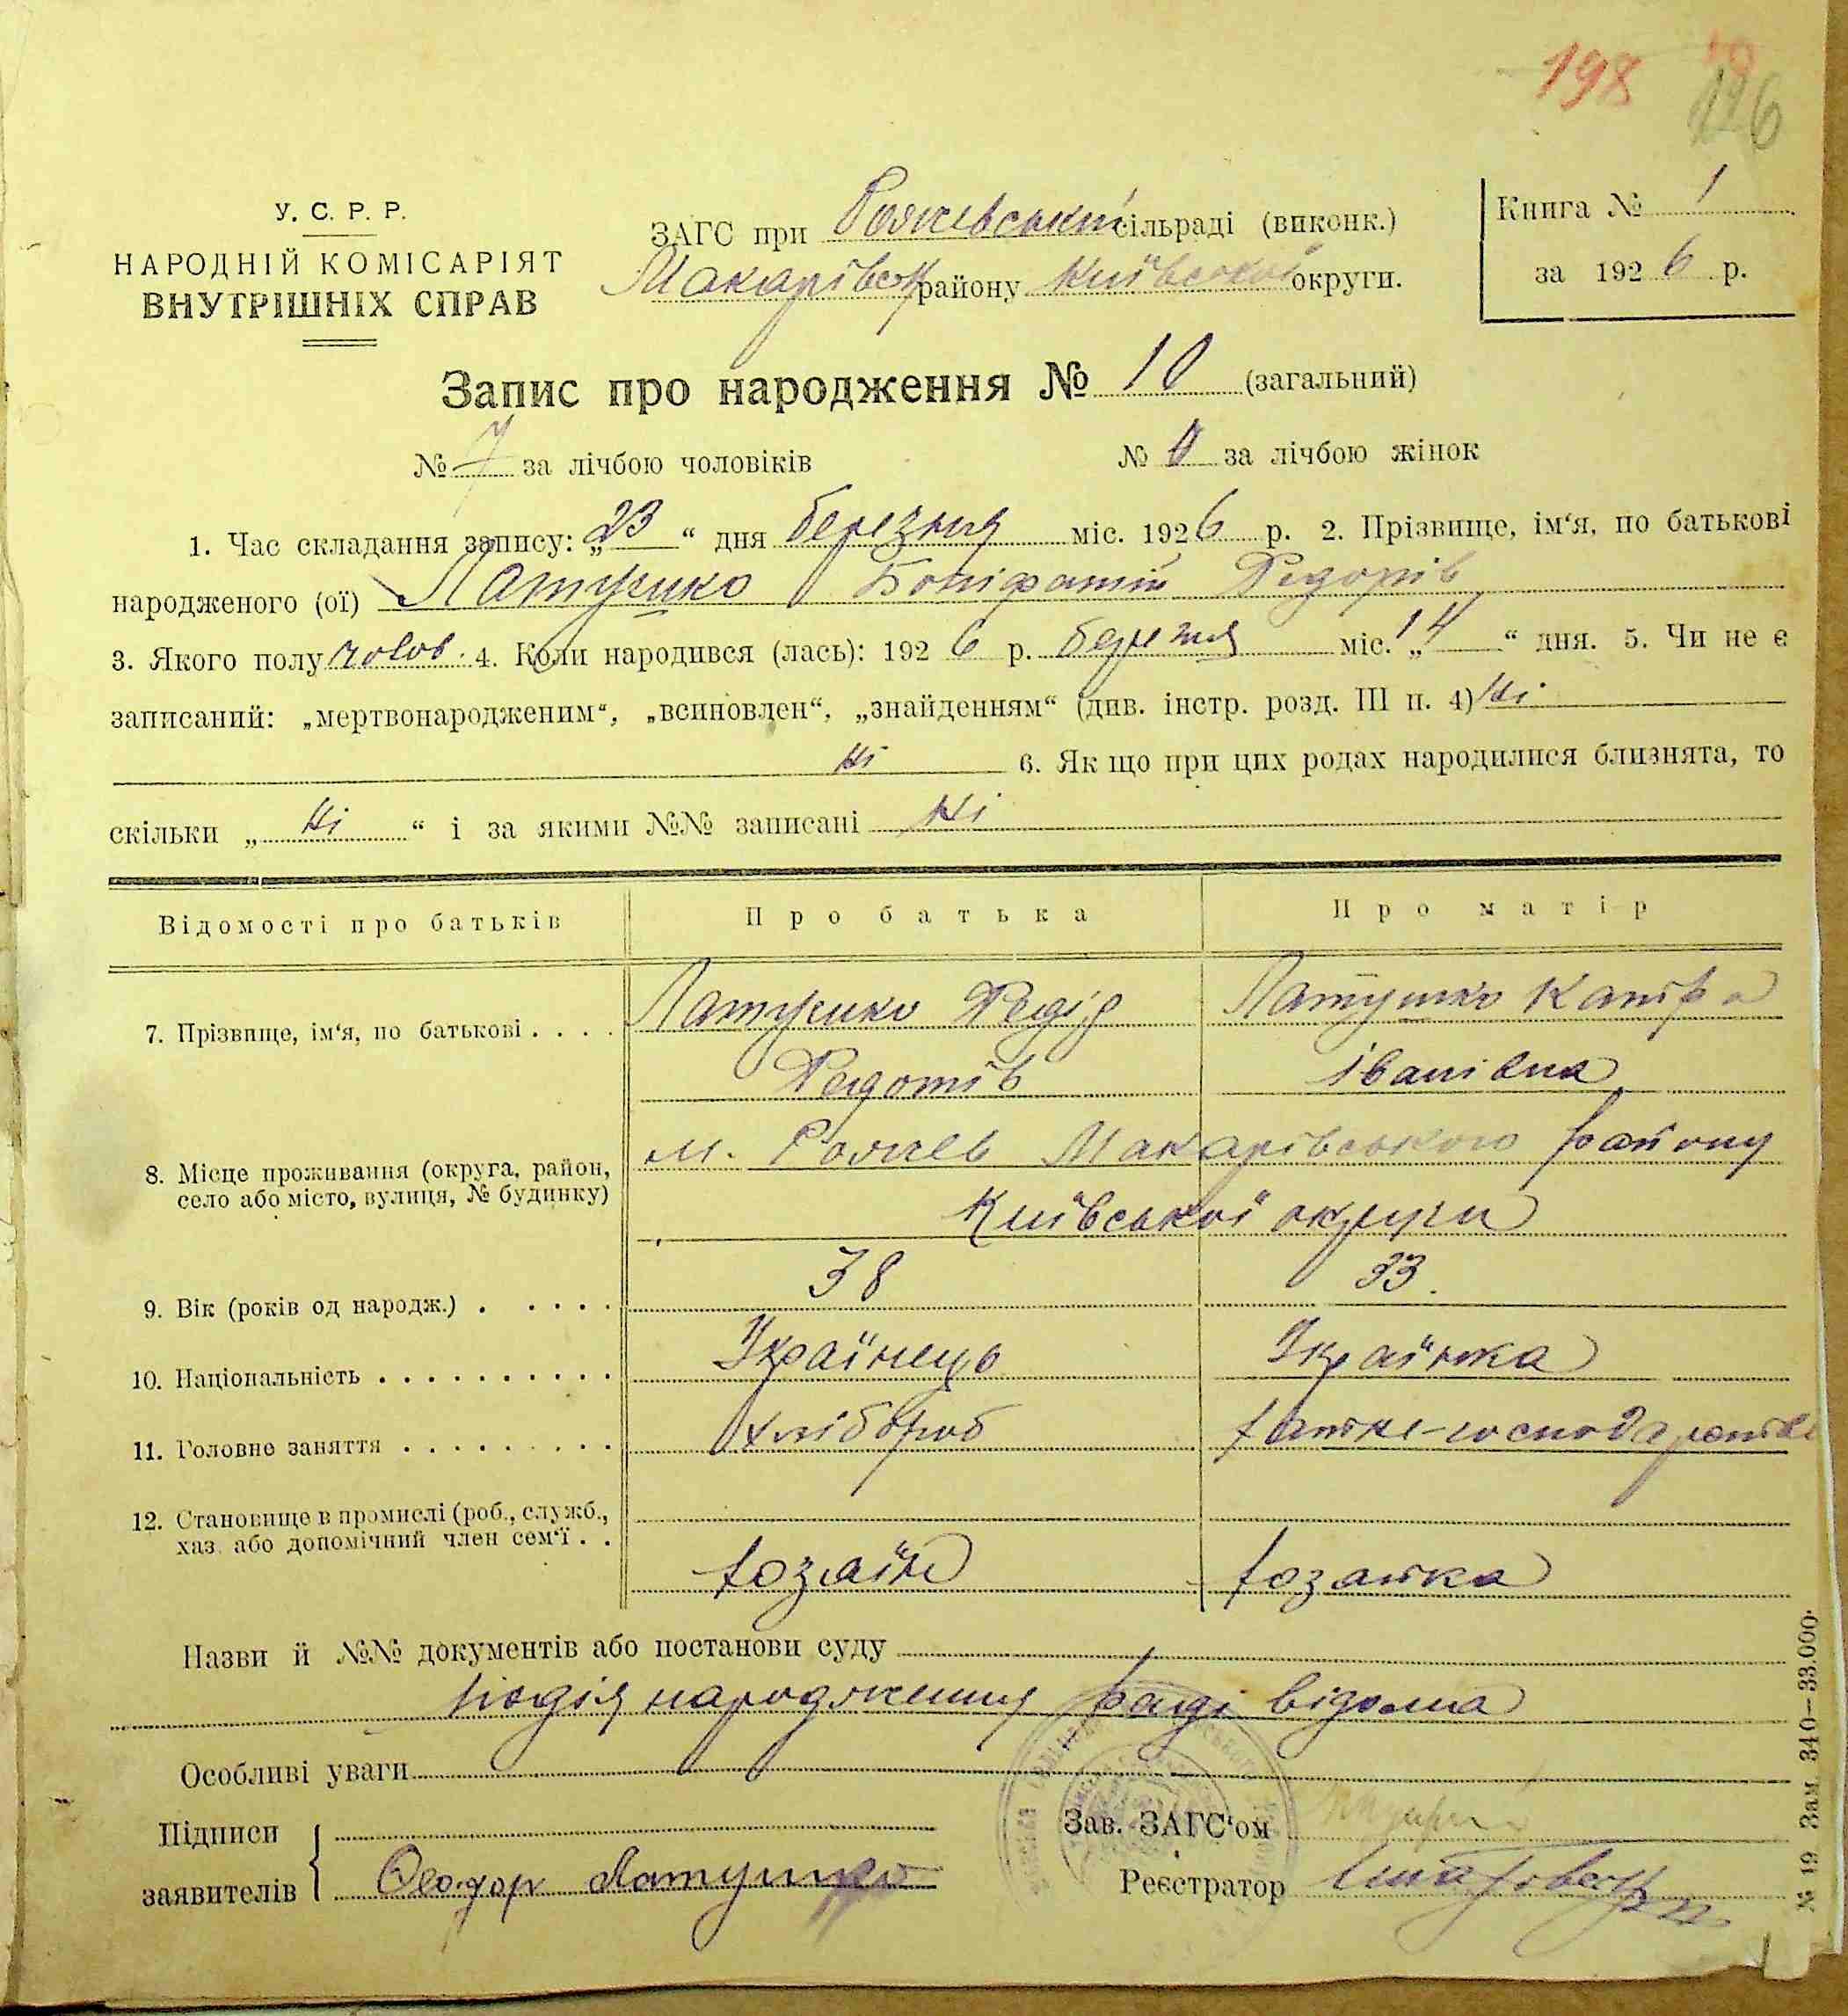 198 126
У. С. Р. Р.
НАРОДНІЙ КОМІСАРІЯТ
ВНУТРІШНІХ СПРАВ
ЗАГС при Рожевський сільраді (виконк.)
Макарівськ району Київської округи.
Книга № 1
за 1926 р.
Запис про народження № 10 (загальний)
№ 7 за лічбою чоловіків № 0 за лічбою жінок
1. Час складання запису: „23“ дня березня міс. 1926 р. 2. Прізвище, ім‘я, по батькові
народженого (ої) Латушко Боніфатій Федорів
3. Якого полу чолов. 4. Коли народився (лась): 1926 р. березня міс. „14“ дня. 5. Чи не є
записаний: „мертвонародженим“, „всиновлен“, „знайденням“ (див. інстр. розд. III п. 4) Ні
Ні 6. Як що при цих родах народилися близнята, то
скільки „Ні“ і за якими №№ записані Ні
Відомості про батьків Про батька Про матір
7. Прізвище, ім‘я, по батькові . . . . Латушко Федір Латушко
Федотів Іванівна
8. Місце проживання (округа, район, м. Рожев Макарівського району
село або місто, вулиця, № будинку) Київської округи
9. Вік (років од народж.) . . . . . 38 33.
10. Національність . . . . . . . . . . Українець Українка
11. Головне заняття . . . . . . . . . Хлібороб
12. Становище в промислі (роб., служб.,
хаз. або допомічний член сем‘ї . . хозаїн хозайка
Назви й №№ документів або постанови суду
подія народження раді відома
Особливі уваги
Підписи
заявителів Феодор Латушко
Зав. ЗАГС‘ом
Реєстратор
№ 19 Зам. 340—33.000.